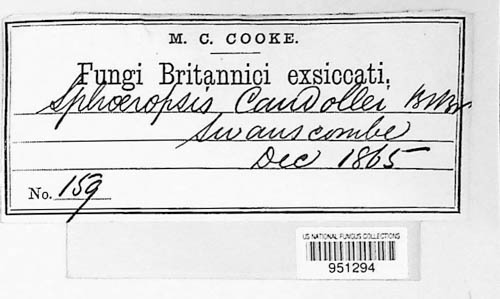 M. C. COOKE.
Fungi Britannici exsiccati.
Sphæropsis Candollei B&Br
Swanscombe
Dec 1865
No. 159
US NATIONAL FUNGUS COLLECTIONS
951294